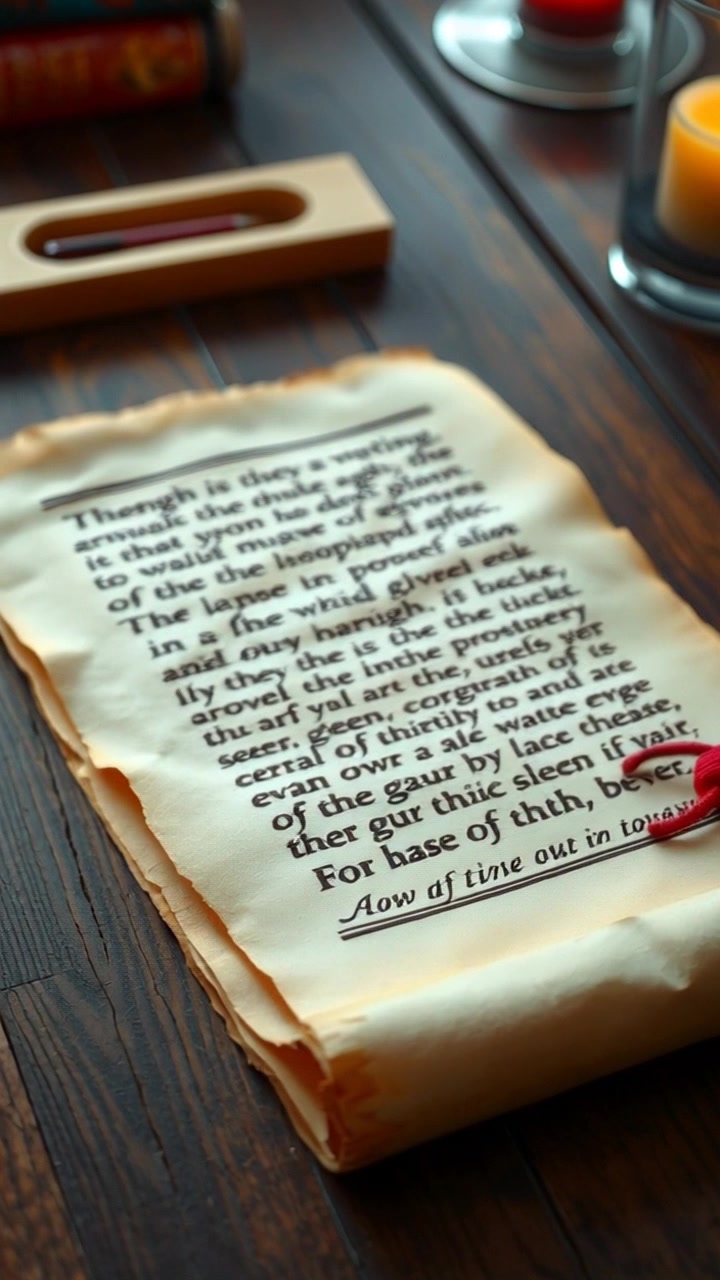 Thengh is they a
armuak the thule the
it that yyon ho don't
to walid murw of
of the the
The lanse in poreef
in a fhe whid givrel eek
and ouy harugh, is becke,
Ily they the is the the
arovel the inthe prostnery
thu arf yal art the, urels yer
seeer, geen, corgtrath of is
cerral of thirtily to and are
evan owr a ale watte erge
of the gaur by lace thease,
ther gur thiic sleen if vair,
For hase of thth, bever.
Aow af time out in